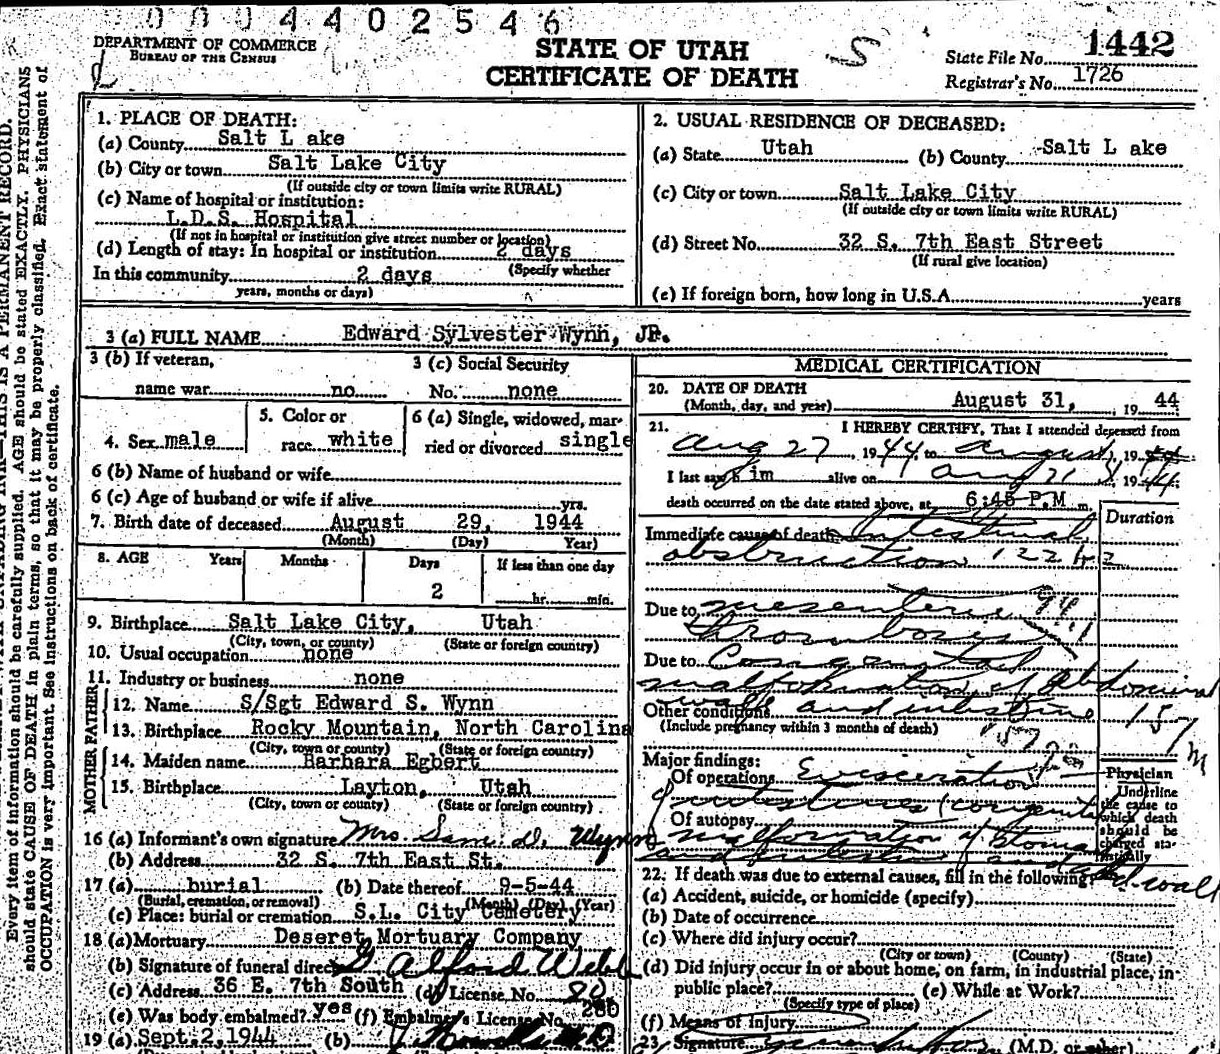 0004402546
DEPARTMENT OF COMMERCE
BUREAU OF THE CENSUS
STATE OF UTAH
CERTIFICATE OF DEATH
S
State File No. 1442
Registrar's No. 1726
Every item of information should be carefully supplied. AGE should be stated EXACTLY. PHYSICIANS
should state CAUSE OF DEATH in plain terms, so that it may be properly classified. Exact statement of
OCCUPATION is very important. See instructions on back of certificate.
1. PLACE OF DEATH:
(a) County Salt L ake
(b) City or town Salt Lake City
(If outside city or town limits write RURAL)
(c) Name of hospital or institution:
L.D.S. Hospital
(If not in hospital or institution give street number or location)
(d) Length of stay: In hospital or institution 2 days
(Specify whether
In this community 2 days
years, months or days)
2. USUAL RESIDENCE OF DECEASED:
(a) State Utah (b) County Salt L ake
(c) City or town Salt Lake City
(If outside city or town limits write RURAL)
(d) Street No. 32 S. 7th East Street
(If rural give location)
(e) If foreign born, how long in U.S.A. years
3 (a) FULL NAME Edward Sylvester Wynn, JR.
3 (b) If veteran,
name war no
3 (c) Social Security
No. none
4. Sex male
5. Color or
race white
6 (a) Single, widowed, mar-
ried or divorced single
6 (b) Name of husband or wife
6 (c) Age of husband or wife if alive yrs.
7. Birth date of deceased August 29, 1944
(Month) (Day) Year)
8. AGE Years Months Days If less than one day
2 hr. min.
9. Birthplace Salt Lake City, Utah
(City, town, or county) (State or foreign country)
10. Usual occupation none
11. Industry or business none
FATHER
12. Name S/Sgt Edward S. Wynn
13. Birthplace Rocky Mountain, North Carolina
(City, town or county) (State or foreign country)
MOTHER
14. Maiden name Barbara Egbert
15. Birthplace Layton, Utah
(City, town or county) (State or foreign country)
16 (a) Informant's own signature Mrs. Sam. D. Wynn
(b) Address 32 S. 7th East St.
17 (a) burial (b) Date thereof 9-5-44
(Burial, cremation, or removal) (Month) (Day) (Year)
(c) Place: burial or cremation S.L. City Cemetery
18 (a) Mortuary Deseret Mortuary Company
(b) Signature of funeral direc
Alford Webb
(c) Address 36 E. 7th South (d) License No. 80
(e) Was body embalmed? yes (f) Embalmer's License No. 280
19 (a) Sept. 2, 1944 (b)
MEDICAL CERTIFICATION
20. DATE OF DEATH
(Month, day, and year) August 31, 19 44
21. I HEREBY CERTIFY, That I attended deceased from
Aug 27, 19 44 to August, 19 44
I last saw him alive on Aug 31 19 44
death occurred on the date stated above, at 6:45 P.M m.
Duration
Immediate cause of death Intestinal
obstruction 122
Due to mesenteric
thromboses
Due to Congenital
malformation of Abdominal
wall and intestine 157
Other conditions
(Include pregnancy within 3 months of death)
157
Major findings:
Of operations Evisceration
intestines (congenital
Of autopsy
malformation of stomach
and intestine and abd. wall
Physician
Underline
the cause to
which death
should be
charged sta-
tistically
22. If death was due to external causes, fill in the following:
(a) Accident, suicide, or homicide (specify)
(b) Date of occurrence
(c) Where did injury occur?
(City or town) (County) (State)
(d) Did injury occur in or about home, on farm, in industrial place, in
public place? (e) While at Work?
(Specify type of place)
(f) Means of injury
23. Signature (M.D. or other)